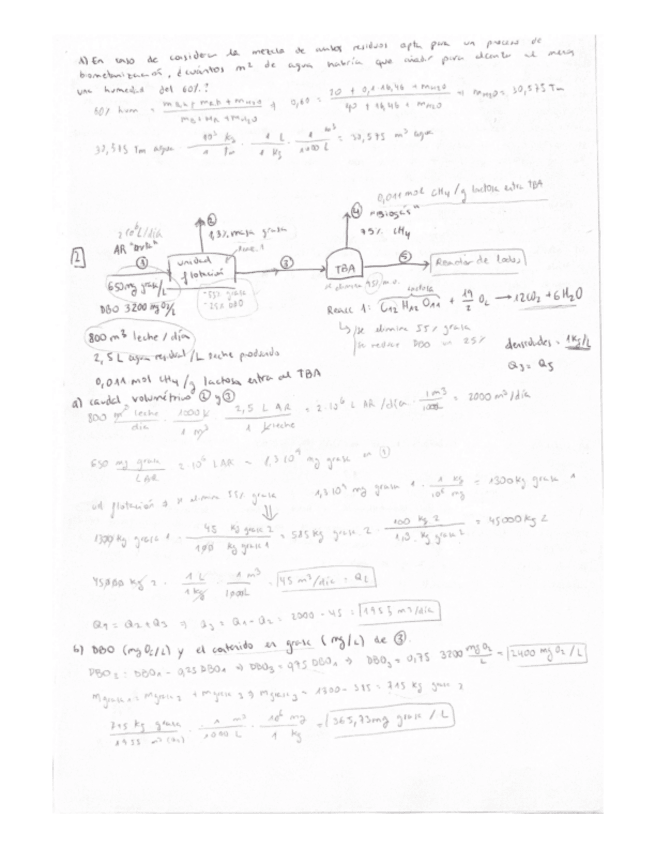 1) En caso de considerar la mezcla de ambos residuos apta para un proceso de
biometanización, ¿cuántos m³ de agua habría que añadir para alcanzar al menos
una humedad del 60%?
60% hum = 0,60 = 20 + 0,1·16,46 + mH2O / 40 + 16,46 + mH2O ⇒ mH2O = 30,575 Tm
30,575 Tm agua · 10³ kg / 1 Tm · 1 L / 1 kg · 1 m³ / 1000 L = 30,575 m³ agua
0,011 mol CH4/g lactosa entra TBA
② ④ "Biogás"
75% CH4
2·10⁶ L/día
AR
2 ① unidad flotación ③ TBA ⑤ Reactor de lodos
650 mg grasa/L
DBO 3200 mgO2/L
-55% grasa
-25% DBO
lactosa
Reacc 1: C12 H22 O11 + O2 → 12CO2 +
↳ se elimina 55% grasa
se reduce DBO en 25%
densidades = 1kg/L
Q3 = Q5
800 m³ leche / día
2,5 L agua residual / L leche producido
0,011 mol CH4/g lactosa entra al TBA
a) caudal volumétrico ② y ③
800 m³ leche / día · 1000 L / 1 m³ · 2,5 L AR / 1 L leche = 2·10⁶ L AR /día · 1 m³ / 1000L = 2000 m³/día
650 mg grasa / L AR · 2·10⁶ L AR = 1,3·10⁹ mg grasa en ①
1,3·10⁹ mg grasa 1 · 1 kg / 10⁶ mg = 1300 kg grasa 1
flotación se elimina 55% grasa
1300 kg grasa 1 · 45 kg grasa 2 / 100 kg grasa 1 = 585 kg grasa 2 · 100 kg 2 / 1,3 kg grasa 2 = 45000 kg 2
45000 kg 2 · 1 L / 1 kg · 1 m³ / 1000L = 45 m³/día = Q2
Q1 = Q2 + Q3 ⇒ Q3 = Q1 - Q2 = 2000 - 45 = 1955 m³/día
b) DBO (mgO2/L) y el contenido en grasa (mg/L) de ③.
DBO3 = DBO1 - 0,25 DBO1 ⇒ DBO3 = 0,75 DBO1 ⇒ DBO3 = 0,75 · 3200 mgO2 / L = 2400 mgO2/L
mgrasa1 = mgrasa2 + mgrasa3 ⇒ mgrasa3 = 1300 - 585 = 715 kg grasa 3
715 kg grasa / 1955 m³ · 1 m³ / 1000 L · 10⁶ mg / 1 kg = 365,73 mg grasa / L